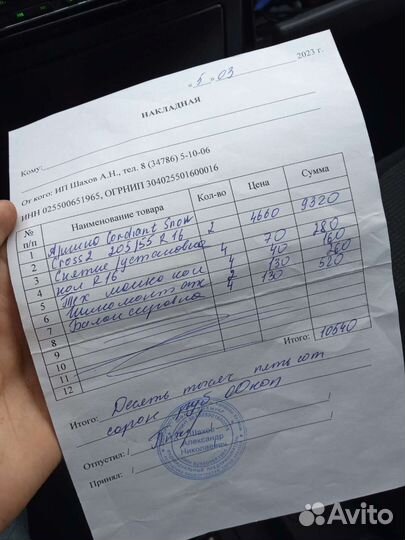 « 5 » 03 2023 г.
НАКЛАДНАЯ
Кому:
От кого: ИП Шахов А.Н., тел. 8 (34786) 5-10-06
ИНН 025500651965, ОГРНИП 304025501600016
№ п/п Наименование товара Кол-во Цена Сумма
1 Cordiant Snow 2 4660 9320
2 Cross 2 205/55 R 16
3 Снятие/установка 4 70 280
4 кол R 16 4 40 160
5 Тех мойка кол 2 130 260
6 Шиномонтаж 4 130 520
7 Балансировка
8
9
10
11
12
Итого: 10540
Итого: Десять тысяч пятьсот
сорок руб 00 коп
Отпустил: /
Шахов
Александр
Николаевич
Принял: /
Avito